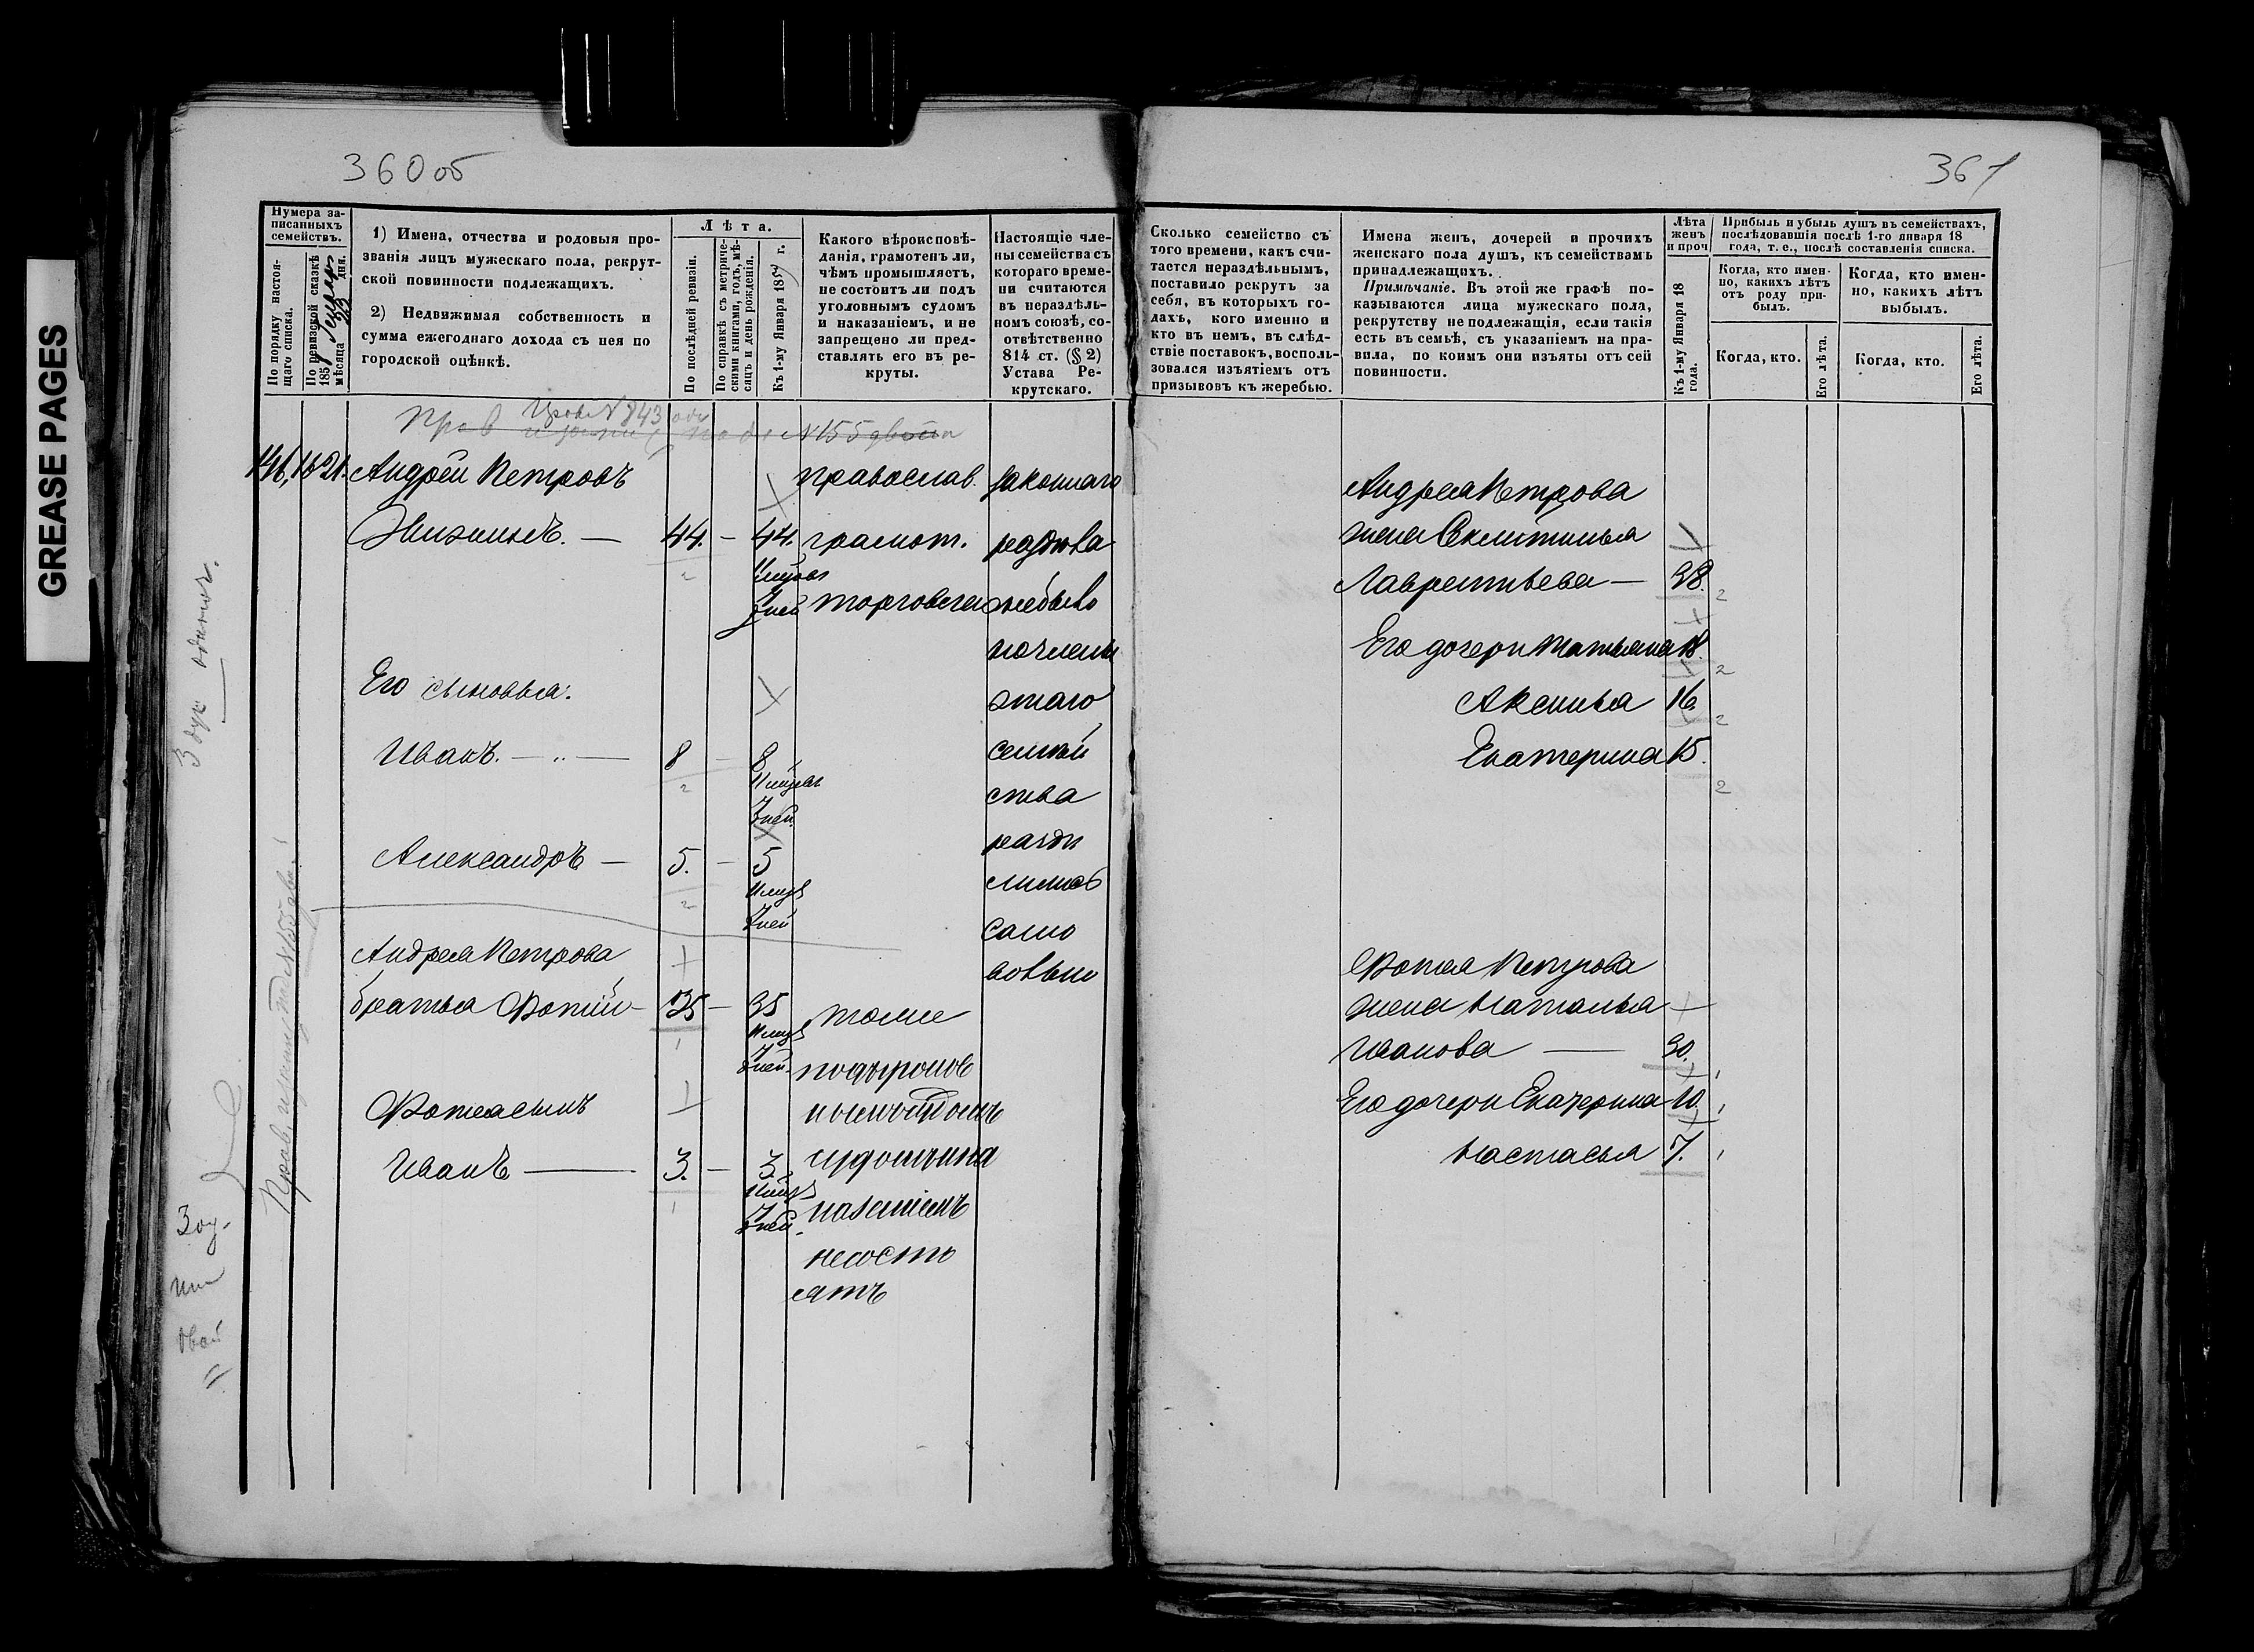 GREASE PAGES
360 об
361
Нумера записанныхъ семействъ.
По порядку настоящаго списка.
По ревизской сказкѣ 185 мѣсяца 23 дня.
1) Имена, отчества и родовыя прозванія лицъ мужескаго пола, рекрутской повинности подлежащихъ.
2) Недвижимая собственность и сумма ежегоднаго дохода съ нея по городской оцѣнкѣ.
Лѣта.
По послѣдней ревизіи.
По справкѣ съ метрическими книгами, годъ, мѣсяцъ и день рожденія.
Къ 1-му Января 185 г.
Какого вѣроисповѣданія, грамотенъ ли, чѣмъ промышляетъ, не состоитъ ли подъ уголовнымъ судомъ и наказаніемъ, и не запрещено ли представлять его въ рекруты.
Настоящіе члены семейства съ котораго времени считаются въ нераздѣльномъ союзѣ, соотвѣтственно 814 ст. (§ 2) Устава Рекрутскаго.
Сколько семейство съ того времени, какъ считается нераздѣльнымъ, поставило рекрутъ за себя, въ которыхъ годахъ, кого именно и кто въ немъ, въ слѣдствіе поставокъ, воспользовался изъятіемъ отъ призывовъ къ жеребью.
Имена женъ, дочерей и прочихъ женскаго пола душъ, къ семействамъ принадлежащихъ.
Примѣчаніе. Въ этой же графѣ показываются лица мужескаго пола, рекрутству не подлежащія, если такія есть въ семьѣ, съ указаніемъ на правила, по коимъ они изъяты отъ сей повинности.
Лѣта женъ и проч
Къ 1-му Января 18 года.
Прибыль и убыль душъ въ семействахъ, послѣдовавшія послѣ 1-го января 18 года, т. е., послѣ составленія списка.
Когда, кто именно, какихъ лѣтъ отъ роду прибылъ.
Когда, кто именно, какихъ лѣтъ выбылъ.
Когда, кто.
Его лѣта.
Когда, кто.
Его лѣта.
N 843
N 155
146, 1821. Андрей Петровъ
44. – 44.
Его сыновья:
Иванъ. — „ — 8 – 8
Александръ — 5. – 5
Андрея Петрова
братья Фотий – 35 – 35
Фотея сынъ
Иванъ — 3. – 3.
православ.
грамот.
законнаго
раздѣла
небыло
но члены
этаго
семей
ства
разде
лились
само
вольно
тоже
подъ уголов
нымъ судомъ
и наказаніемъ
несосто
ятъ
Андрея Петрова
жена Секлитинья
Лаврентьева — 38.
Его дочери Татьяна 18.
Аксинья 16.
Екатерина 15.
Фотея Петрова
жена Наталья
Иванова — 30.
Его дочери Екатерина 10.
Настасья 7.